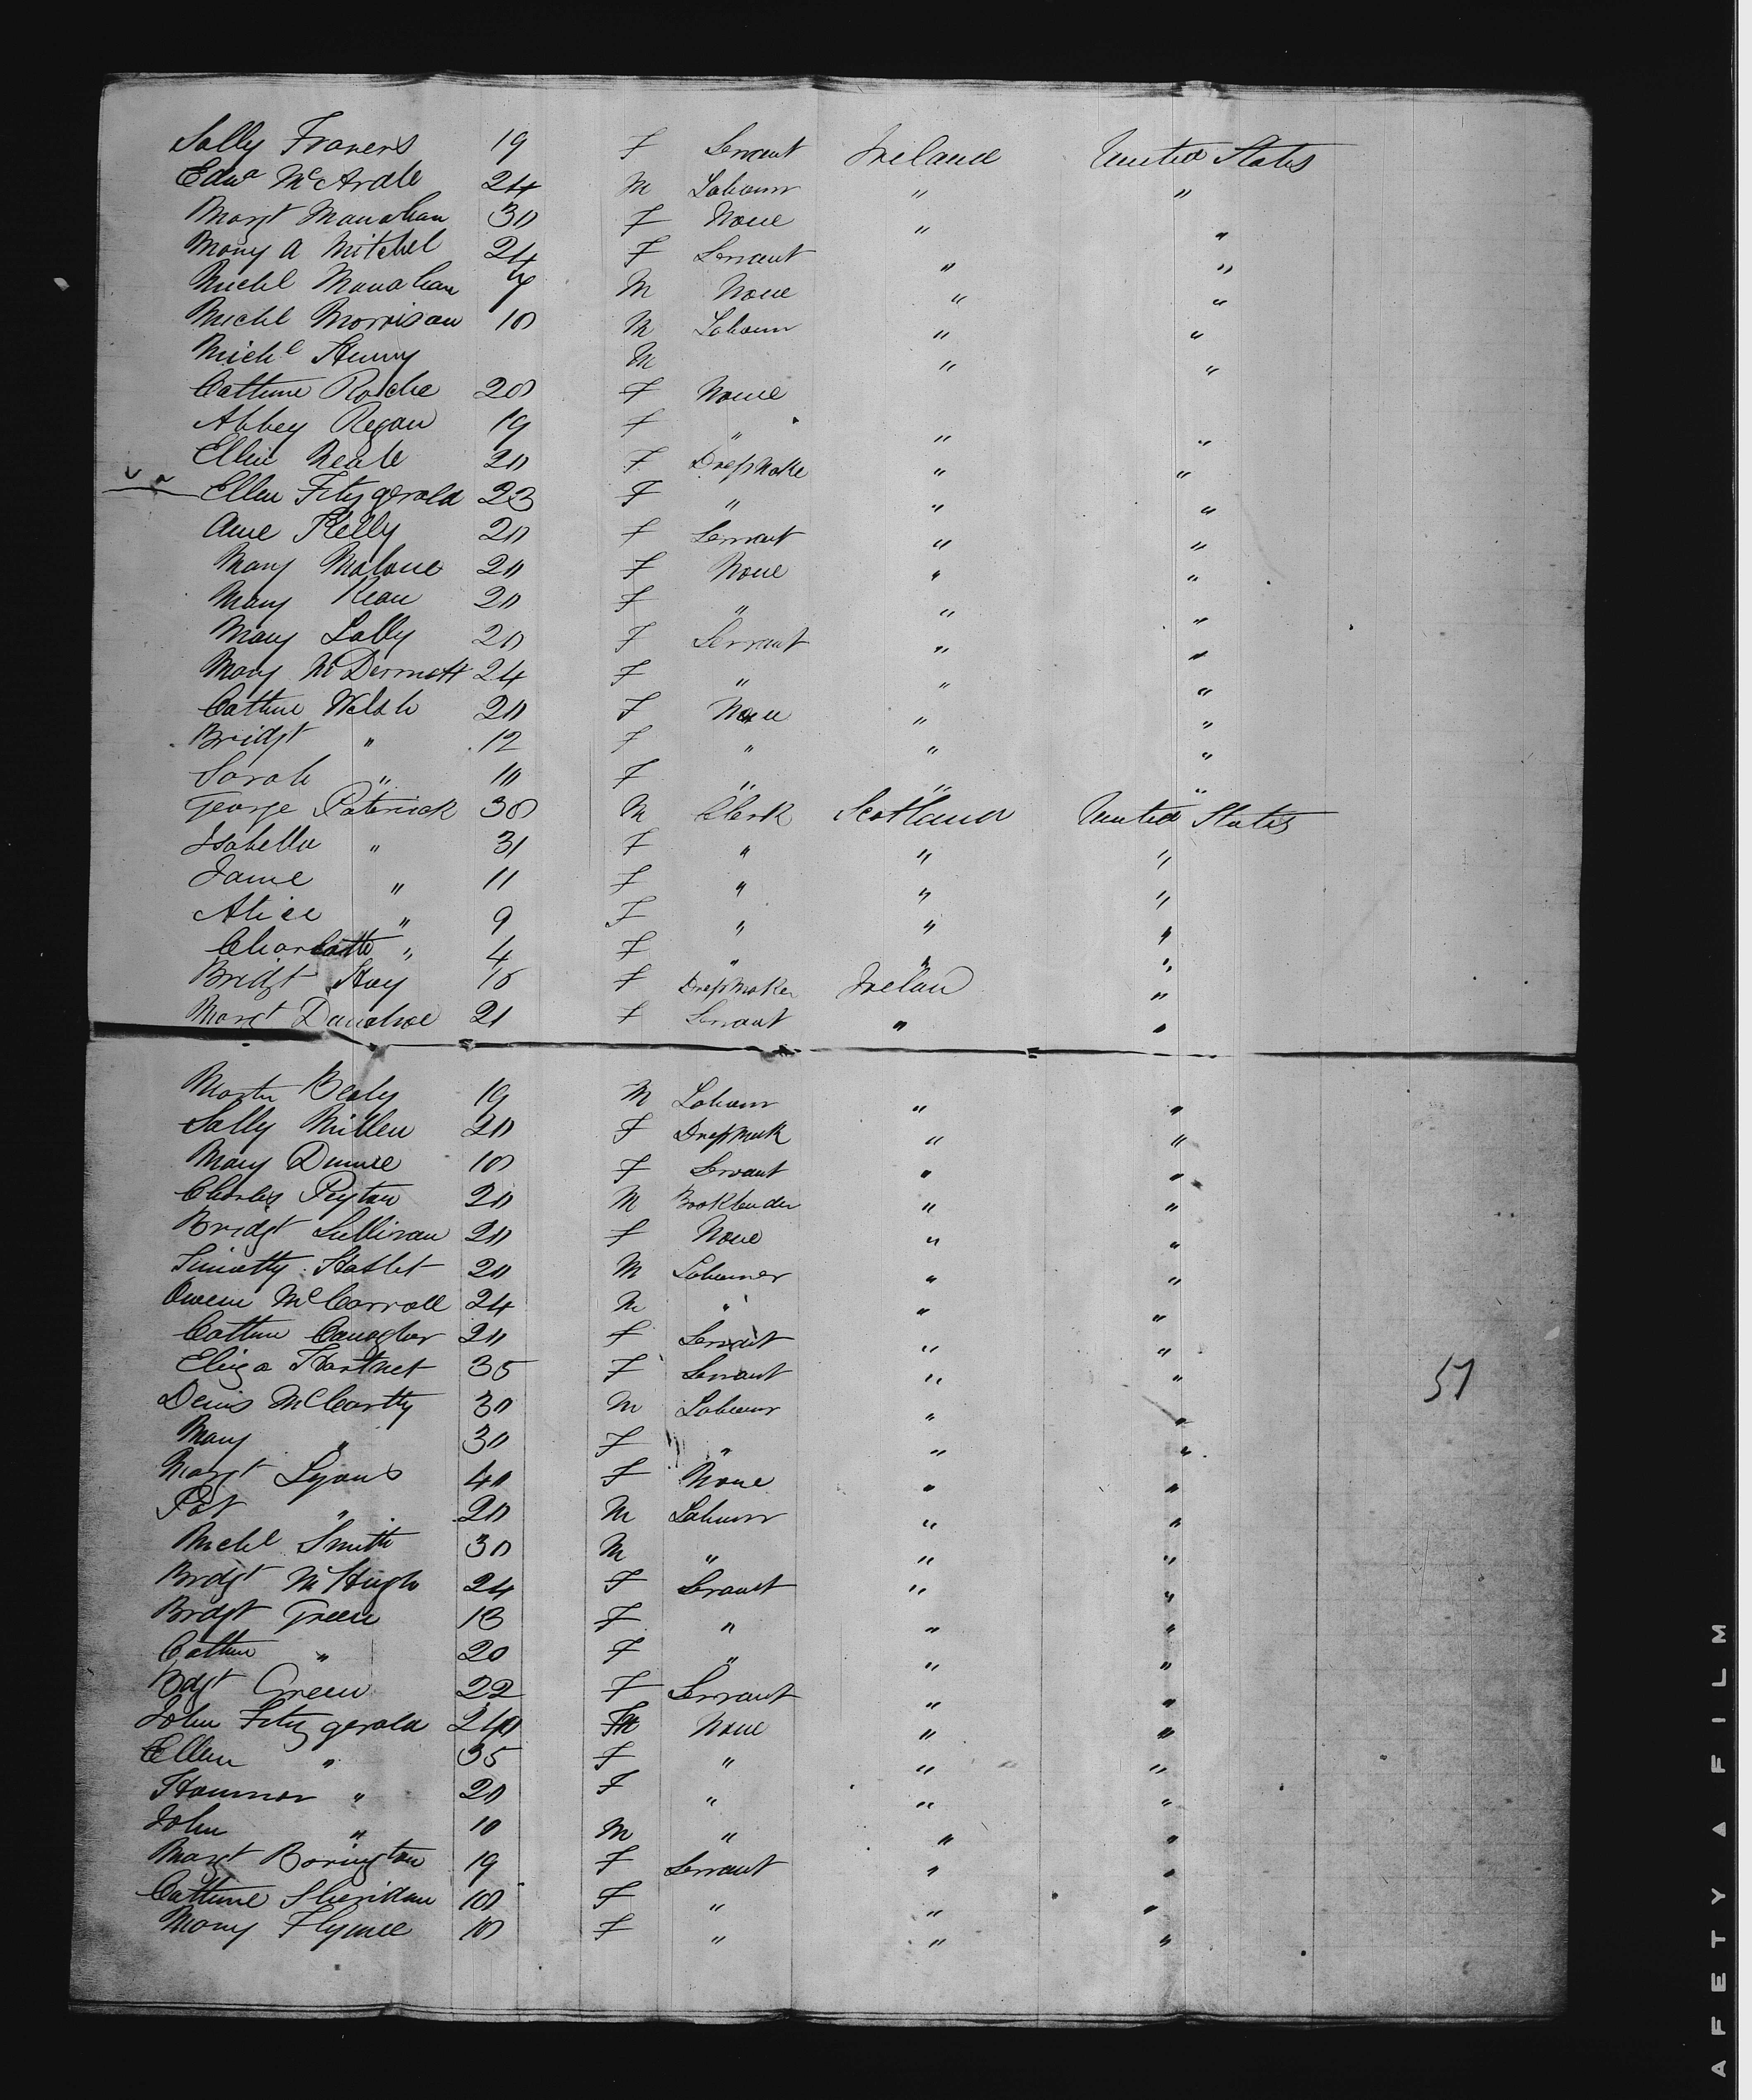 Sally Travers 19 F Servant Ireland United States
Edwd McArdle 24 M Labour " "
Margt Manahan 30 F None " "
Mary A Mitchel 24 F Servant " "
Michl Manahan M None " "
Michl Morrison 18 M Labour " "
Michl Henny M " "
Cathrine Roche 20 F None
Abbey Regan 19 F " " "
Ellen Neale 20 F Dressmake " "
Ellen Fitzgerald 23 F " " "
Anne Kelly 20 F Servant " "
Mary Malone 20 F None " "
Mary Kean 20 F " " "
Mary Lally 20 F Servant " "
Mary McDermott 24 F " " "
Cathine Welsh 20 F None " "
Bridgt " 12 F " " "
Sarah " 10 F " " "
George Paterick 30 M Clerk Scotland United States
Isabella " 31 F " " "
Jane " 11 F " " "
Alice " 9 F " " "
Charlotte " 4 F " " "
Bridgt Hoy 18 F Dressmaker Irelan "
Margt Donahoe 21 F Servant " "
Martn Bealy 19 M Labour " "
Sally Millen 20 F Dressmak " "
Mary Dunne 18 F Servant " "
Charles Peyton 20 M Bookbinder " "
Bridgt Sullivan 20 F None " "
Timothy Haslet 20 M Labourer " "
Owen McCarroll 24 M " " "
Cathn Canagher 20 F Servant " "
Eliza Hartnet 35 F Servant " "
Denis McCarthy 30 M Labour " "
Mary " 30 F " " "
Margt Lyons 40 F None " "
Pat " 20 M Labour " "
Michl Smith 30 M " " "
Brdgt McHugh 24 F Servant " "
Brdgt Green 18 F " " "
Cathn " 20 F " " "
Bdgt Green 22 F Servant " "
John Fitzgerald 40 M None " "
Ellen " 35 F " " "
Hannor " 20 F " " "
John " 10 M " " "
Margt Borington 19 F Servant " "
Cathine Sheridan 18 F " " "
Mary Flynne 18 F " " "
51
AFETY ▲ FILM